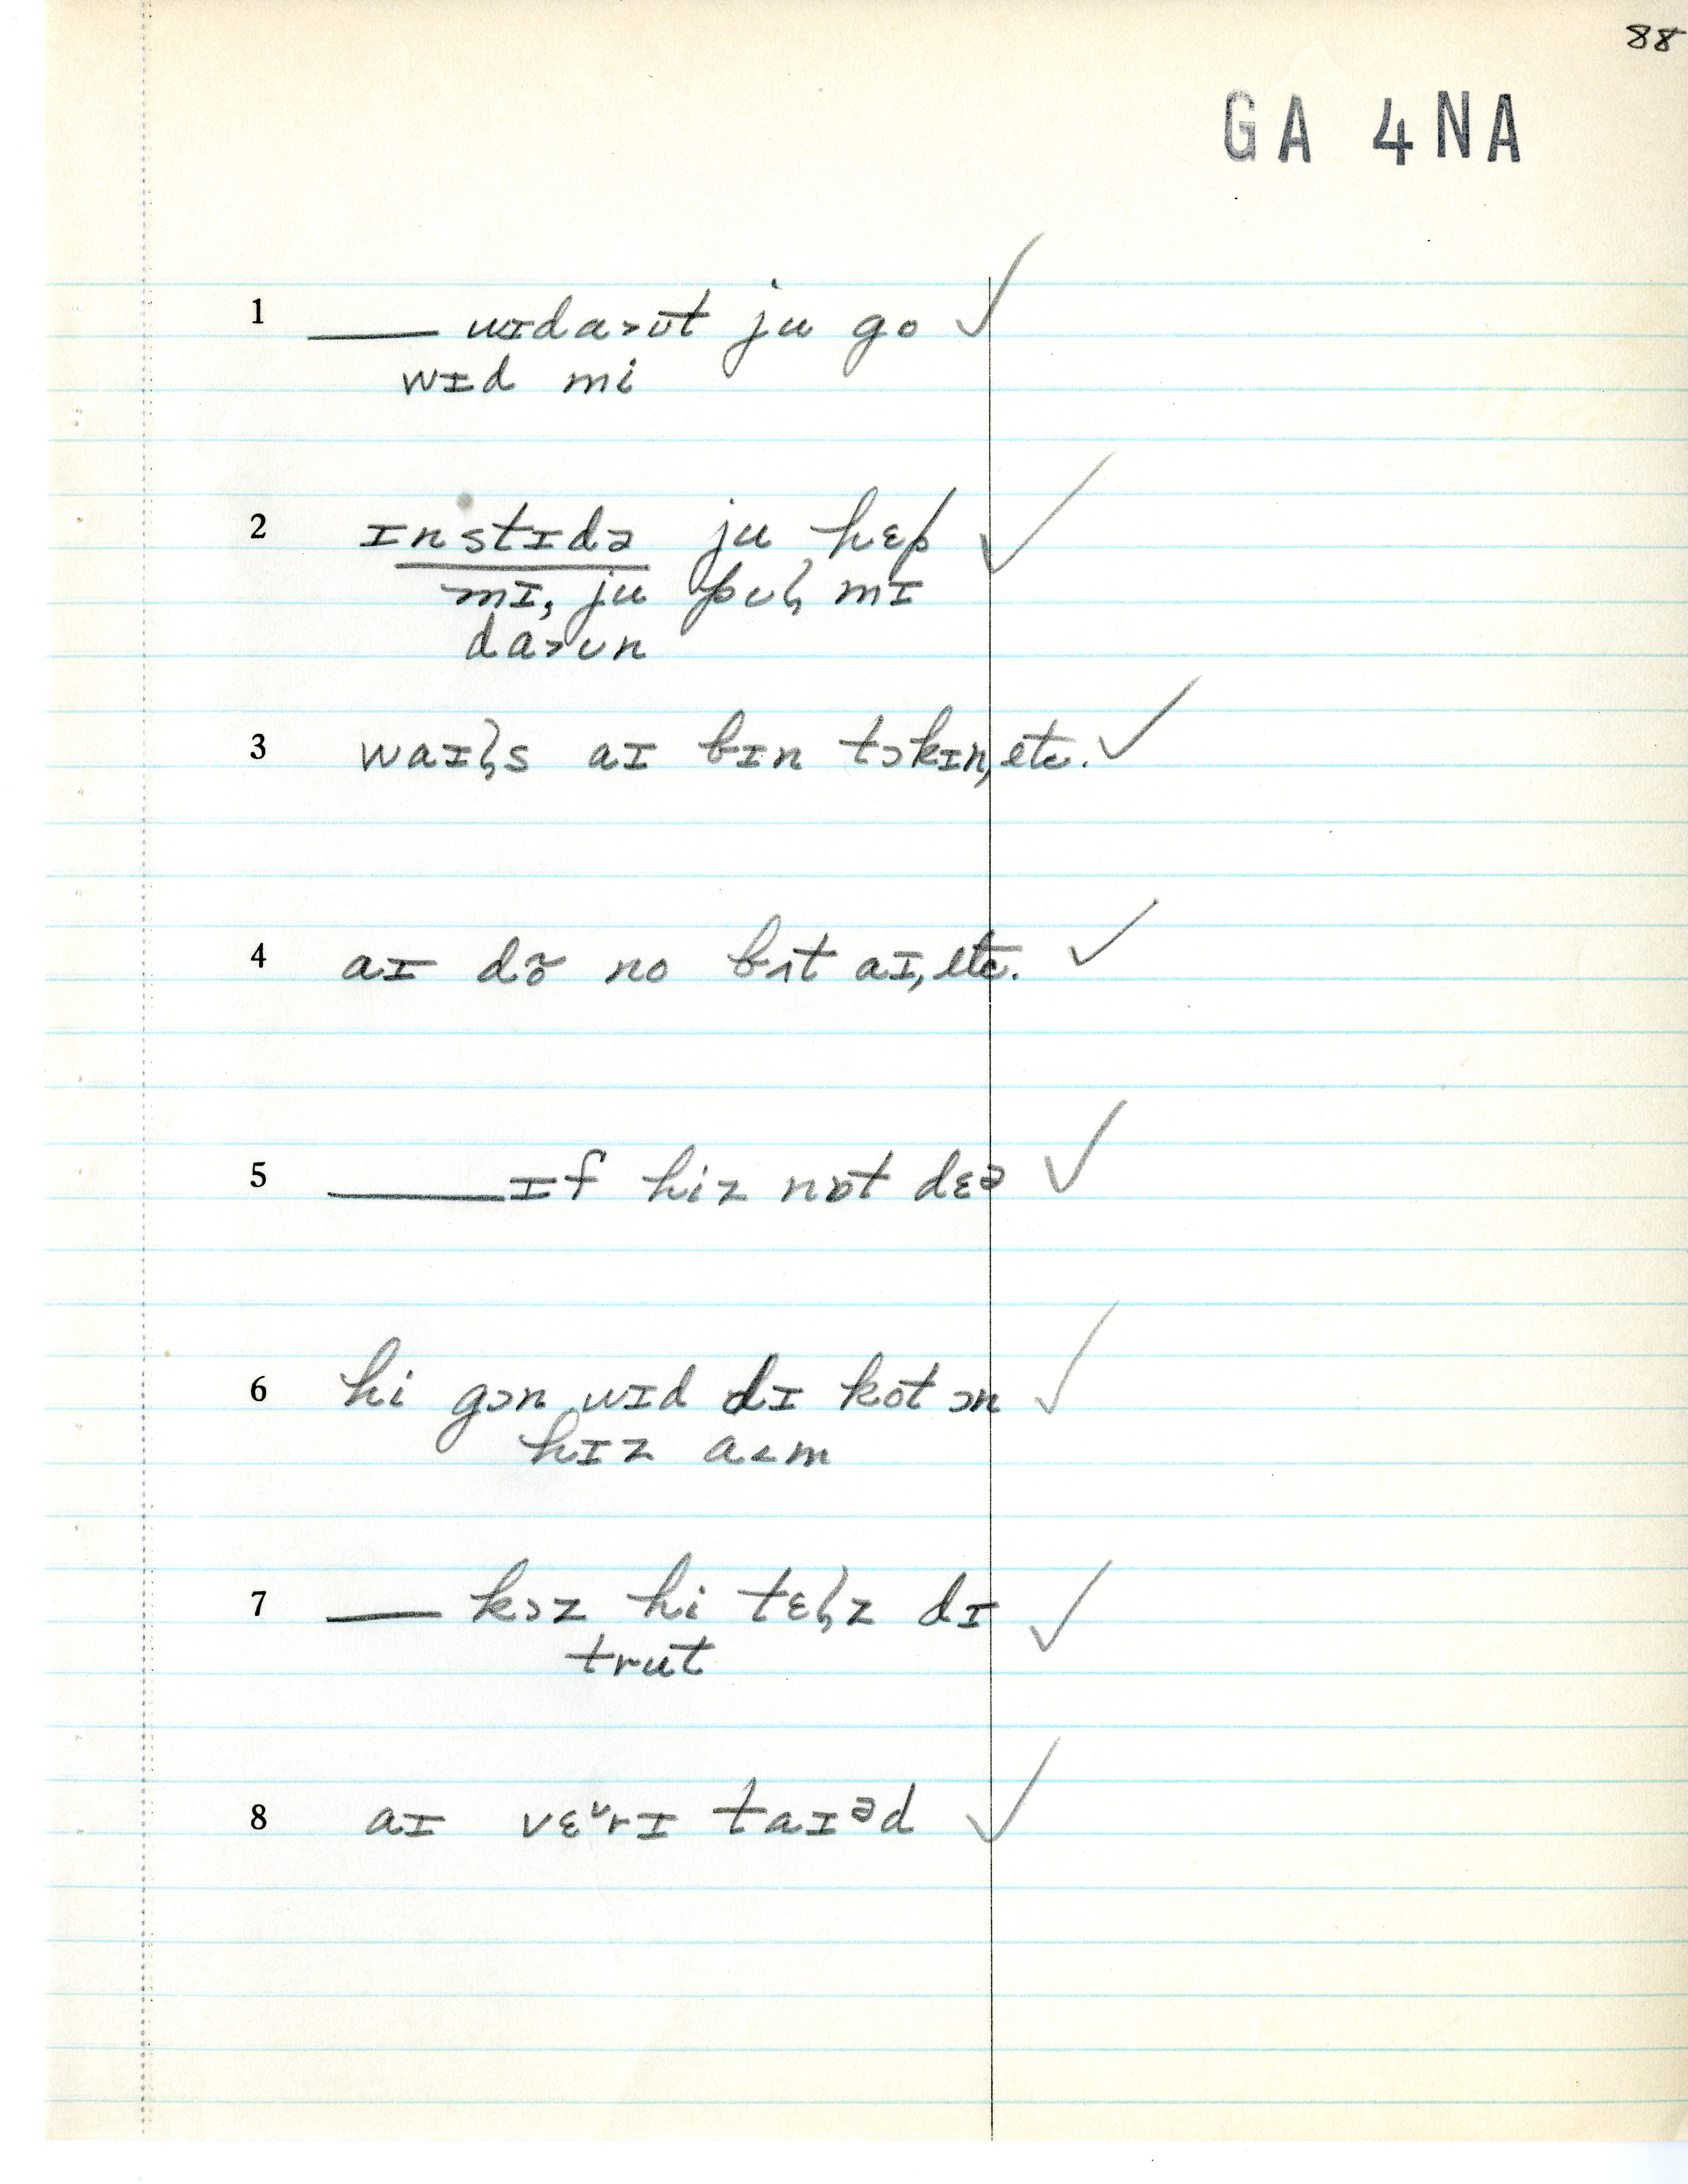 88
GA 4NA
1 ___ wɪda˃ʊt ju go ✓
wɪd mi
2 ɪnstɪdə ju hɛp ✓
mɪ, ju pʊl̡ mɪ
da˃ʊn
3 waɪl̡s aɪ bɪn tɔkɪn, etc. ✓
4 aɪ dõ no bʌt aɪ, etc. ✓
5 ___ ɪf hiz nɒt dɛə ✓
6 hi gɔn wɪd dɪ kot ɔn ✓
hɪz a˂m
7 ___ kɔz hi tɛl̡z dɪ ✓
trut
8 aɪ vɛ˅rɪ taɪᵊd ✓